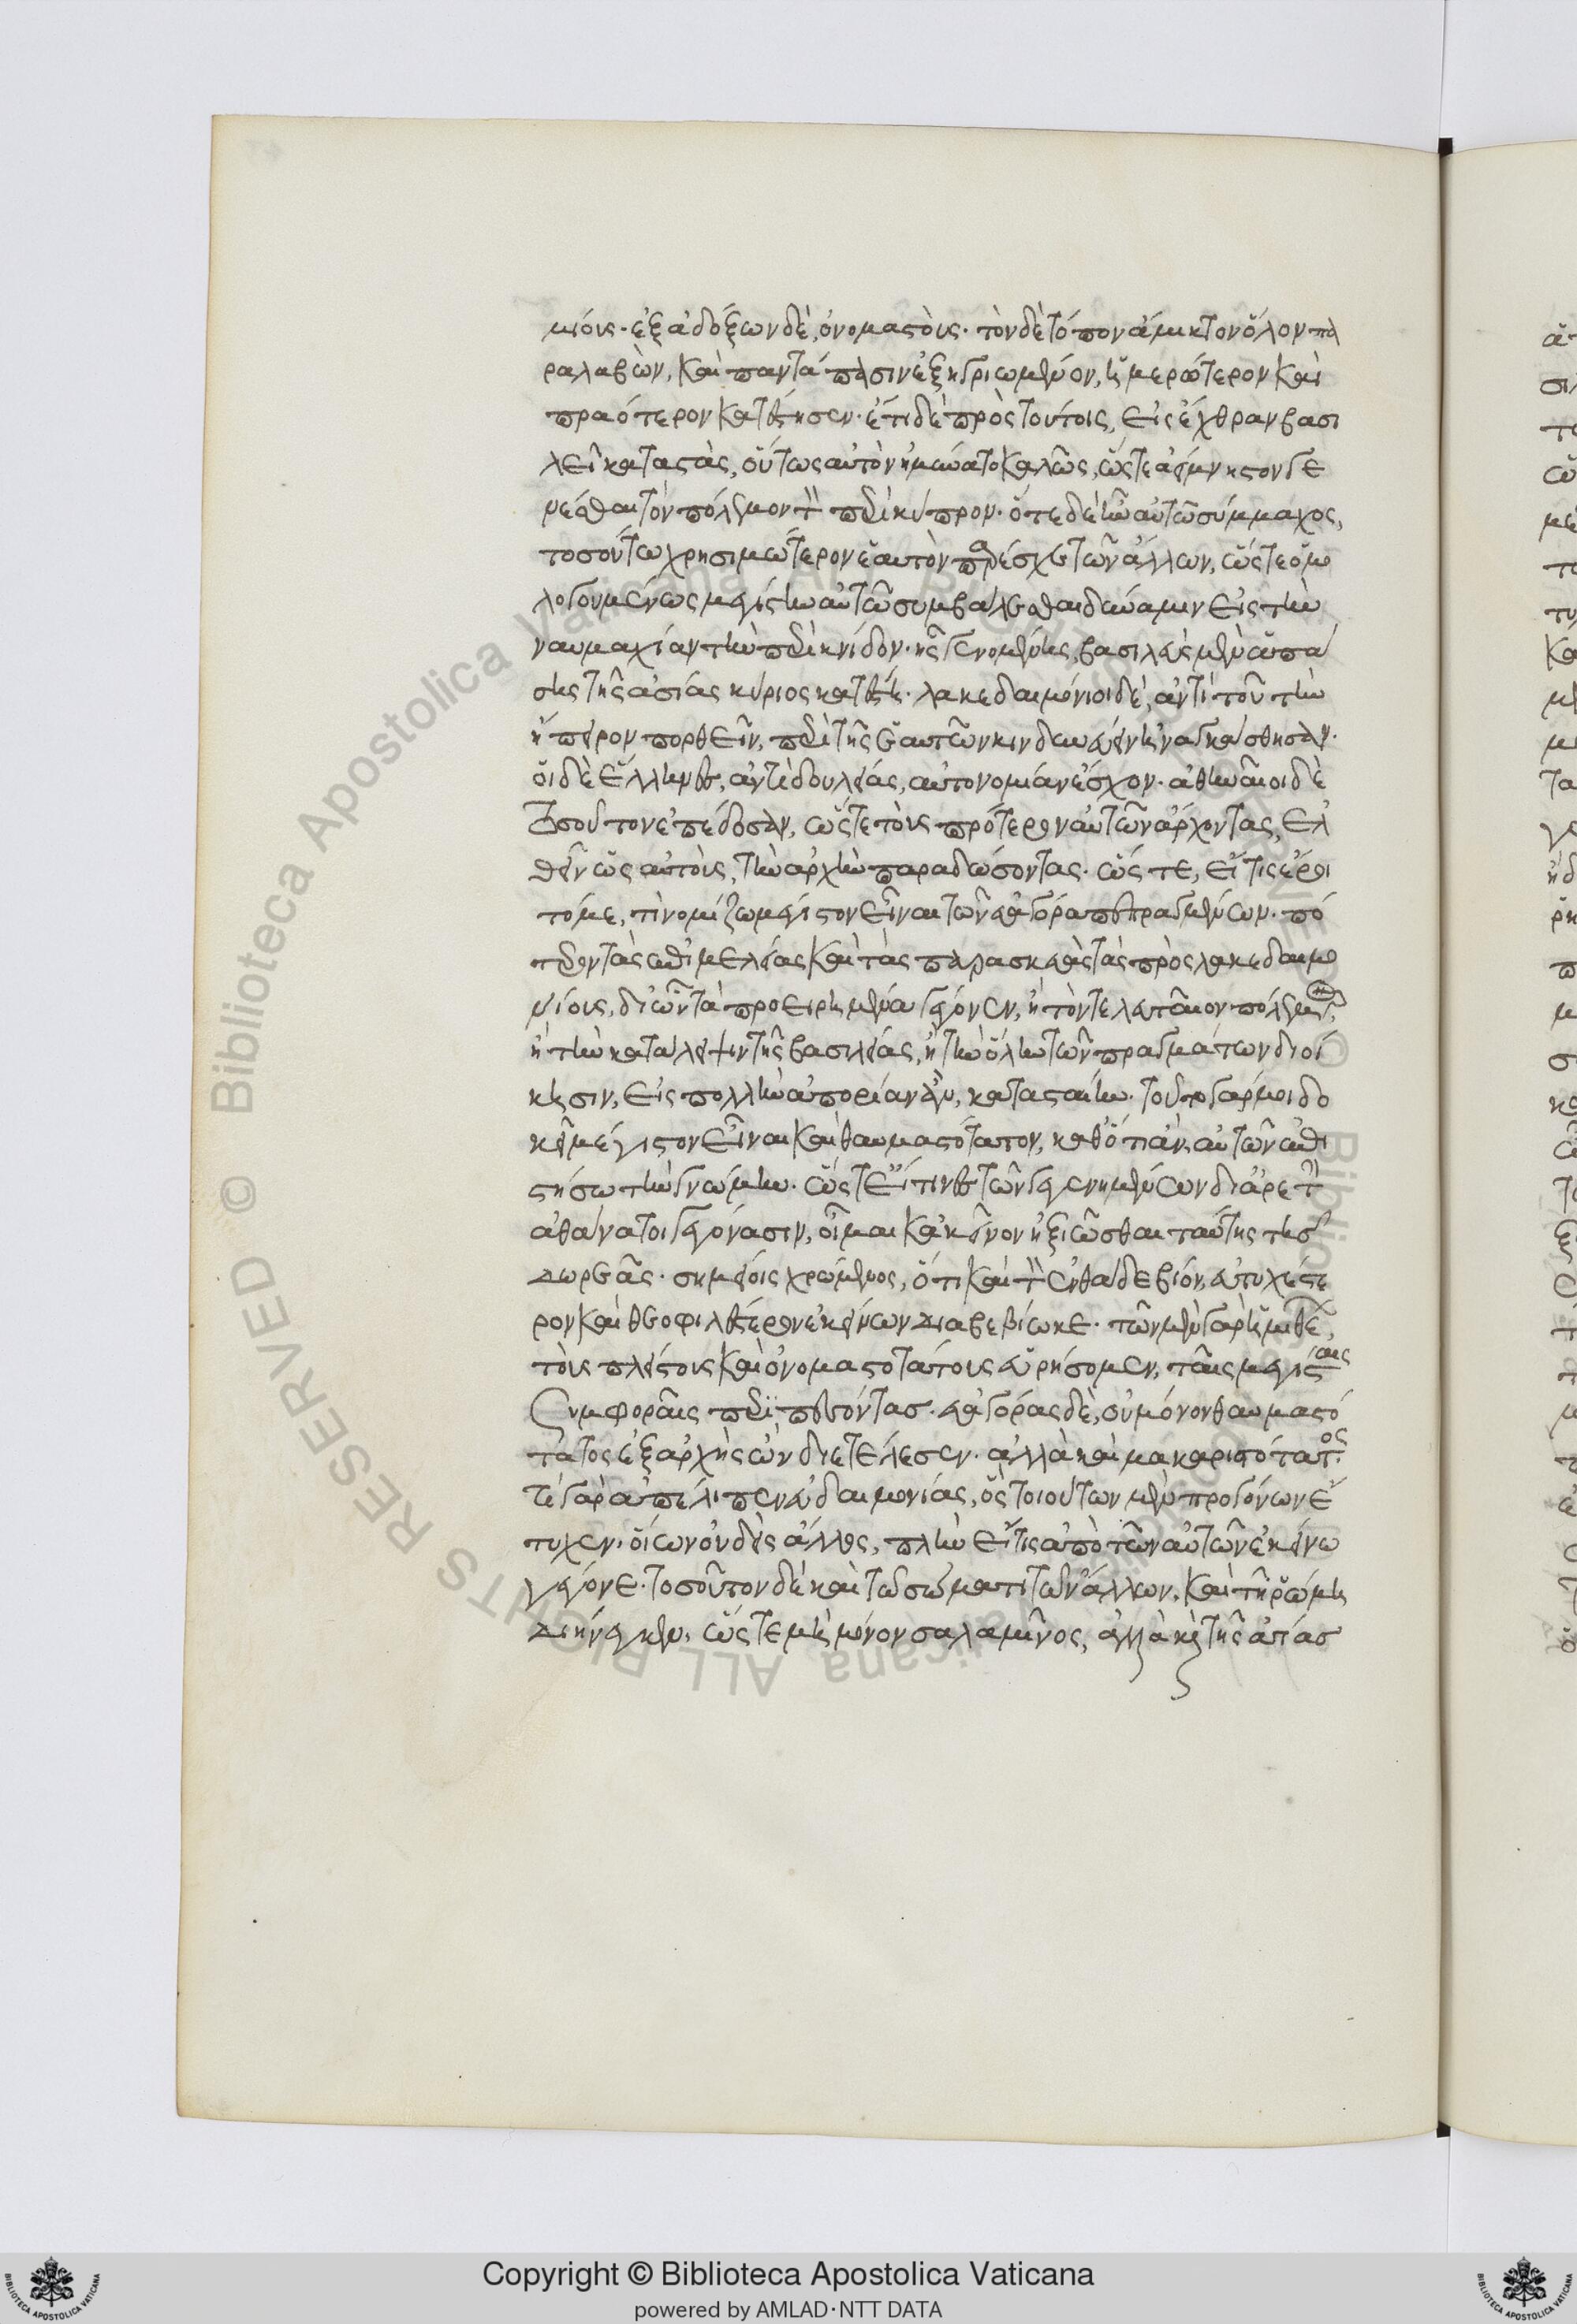 μιόις· ἐξ ἀδόξων δὲ, ὀνομαστοὺς· τὸν δὲ τόπον ἄμικτον ὅλον πα
ραλαβὼν, καὶ παντάπασιν ἐξηγριωμένον, ἡμερώτερον καὶ
πραότερον κατέστησεν· ἔτι δὲ πρὸς τούτοις, εἰς ἔχθραν βασι
λεῖ καταστὰς, οὕτως αὐτὸν ἠμύνατο καλῶς, ὥστε ἀείμνηστον γε
νέσθαι τὸν πόλεμον τὸν περὶ κύπρον· ὅτε δὲ ἦν αὐτῶ σύμμαχος,
τοσούτω χρησιμώτερον ἑαυτὸν παρέσχε τῶν ἄλλων, ὥστε ὁμο
λογουμένως μεγίστην αὐτῶ συμβαλέσθαι δύναμιν εἰς τὴν
ναυμαχίαν τὴν περὶ κνίδον· ἧς γενομένης, βασιλεὺς μὲν ἁπά
σης τῆς ἀσίας κύριος κατέστη· λακεδαιμόνιοι δὲ, ἀντὶ τοῦ τὴν
ἤπειρον πορθεῖν, περὶ τῆς ἑαυτῶν κινδυνεύειν ἠναγκάσθησαν·
οἱ δὲ ἕλληνες, ἀντὶ δουλείας, αὐτονομίαν ἔσχον· ἀθηναῖοι δὲ
τοσοῦτον ἐπέδοσαν, ὥστε τοὺς πρότερον αὐτῶν ἄρχοντας, ἐλ
θεῖν ὡς αὐτοὺς, τὴν ἀρχὴν παραδώσοντας· ὥστε, εἴ τις ἔροι
τό με, τί νομίζω μέγιστον εἶναι τῶν εὐαγόρα πεπραγμένων· πό
τερον τὰς ἐπιμελείας καὶ τὰς παρασκευὰς τὰς πρὸς λακεδαιμο
νίους, δι' ὧν τὰ προειρημένα γέγονεν, ἢ τὸν τελευταῖον πόλεμον,
ἢ τὴν κατάληψιν τῆς βασιλείας, ἢ τὴν ὅλην τῶν πραγμάτων διοί
κησιν, εἰς πολλὴν ἀπορίαν ἂν, κατασταίην. τοῦτο γάρ μοι δο
κεῖ μέγιστον εἶναι καὶ θαυμαστότατον, καθ' ὅτι ἂν αὐτῶν ἐπι
στήσω τὴν γνώμην. ὥστε εἴ τινες τῶν γεγενημένων δι' ἀρετὴν
ἀθάνατοι γεγόνασιν, οἶμαι κἀκεῖνον ἠξιῶσθαι ταύτης τῆς
δωρεᾶς· σημείοις χρώμενος, ὅτι καὶ τὸν ἐνθάδε βίον, εὐτυχέστε
ρον καὶ θεοφιλέστερον ἐκείνων διαβεβίωκε· τῶν μὲν γὰρ ἡμιθέων,
τοὺς πλείστους καὶ ὀνομαστοτάτους εὑρήσομεν, ταῖς μεγίσταις
συμφοραῖς περιπεσόντας. εὐαγόρας δὲ, οὐ μόνον θαυμαστό
τατος ἐξ ἀρχῆς ὢν διετέλεσεν· ἀλλὰ καὶ μακαριστότατος.
τί γὰρ ἀπέλιπεν εὐδαιμονίας, ὃς τοιούτων μὲν προγόνων ἔ
τυχεν, οἵων οὐδεὶς ἄλλος, πλὴν εἴ τις ἀπὸ τῶν αὐτῶν ἐκείνω
γέγονε· τοσοῦτον δὲ καὶ τῶ σώματι τῶν ἄλλων, καὶ τῆ ῥώμη
διήνεγκεν, ὥστε μὴ μόνον σαλαμῖνος, ἀλλὰ καὶ τῆς ἀσίας